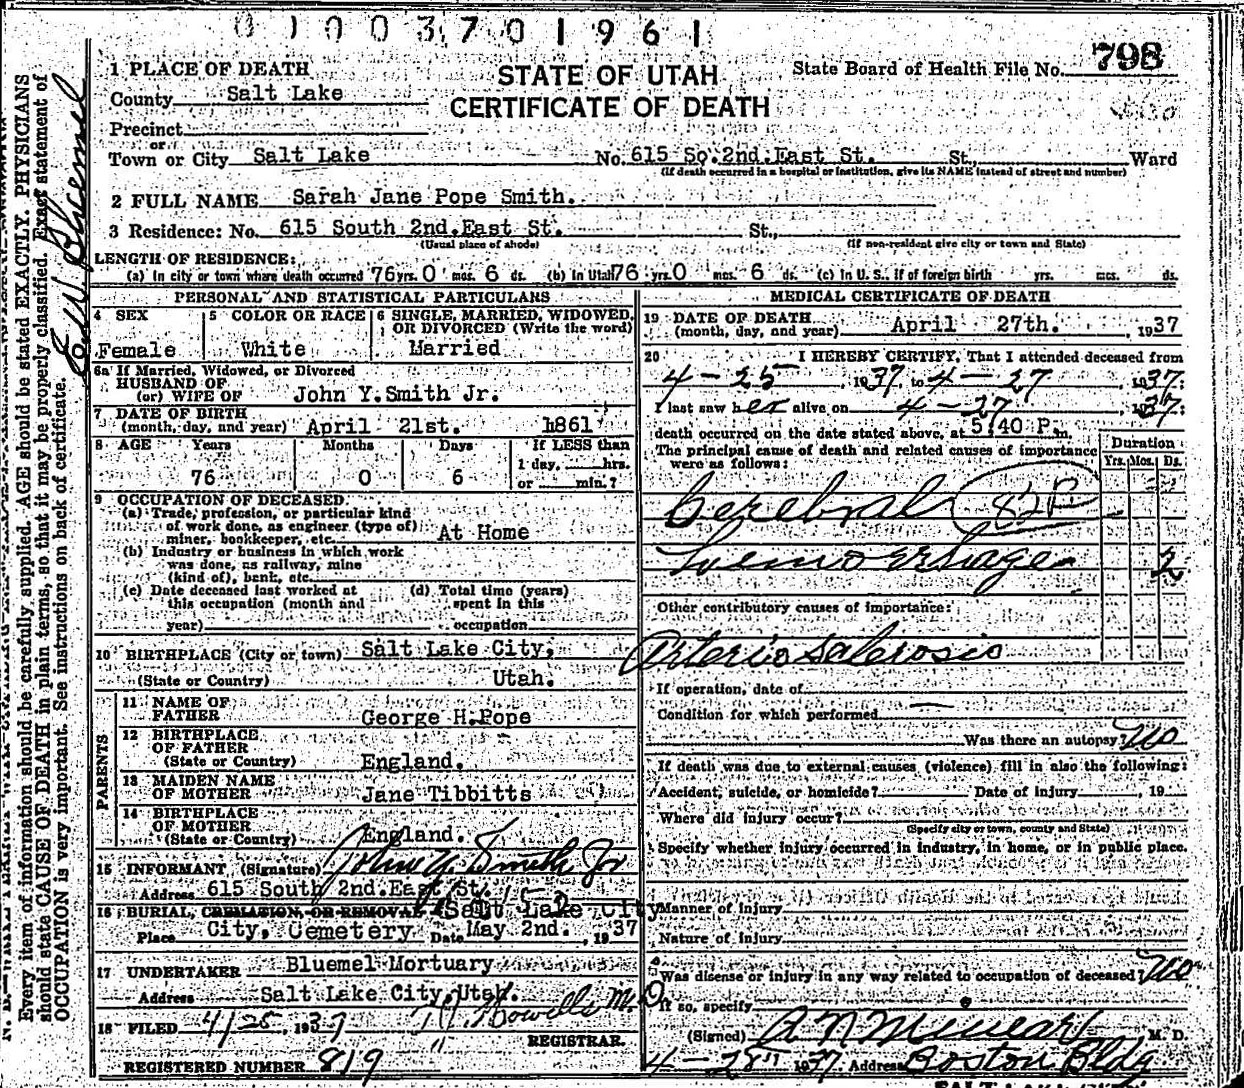 0 1 0 0 3 7 0 1 9 6 1
798
1 PLACE OF DEATH
STATE OF UTAH
State Board of Health File No.
County Salt Lake
CERTIFICATE OF DEATH
Precinct
or
Town or City Salt Lake No. 615 So. 2nd. East St. St., Ward
(If death occurred in a hospital or institution, give its NAME instead of street and number)
2 FULL NAME Sarah Jane Pope Smith.
3 Residence: No. 615 South 2nd. East St. St.,
(Usual place of abode) (If non-resident give city or town and State)
LENGTH OF RESIDENCE:
(a) In city or town where death occurred 76 yrs. 0 mos. 6 ds. (b) In Utah 76 yrs. 0 mos. 6 ds. (c) In U. S., if of foreign birth yrs. mos. ds.
PERSONAL AND STATISTICAL PARTICULARS
4 SEX
Female
5 COLOR OR RACE
White
6 SINGLE, MARRIED, WIDOWED, OR DIVORCED (Write the word)
Married
6a If Married, Widowed, or Divorced
HUSBAND OF
(or) WIFE OF John Y. Smith Jr.
7 DATE OF BIRTH
(month, day, and year) April 21st. 1861
8 AGE Years Months Days If LESS than
1 day, hrs.
76 0 6 or min.?
9 OCCUPATION OF DECEASED
(a) Trade, profession, or particular kind
of work done, as engineer (type of)
miner, bookkeeper, etc. At Home
(b) Industry or business in which work
was done, as railway, mine
(kind of), bank, etc.
(c) Date deceased last worked at
this occupation (month and
year)
(d) Total time (years)
spent in this
occupation
10 BIRTHPLACE (City or town) Salt Lake City,
(State or Country) Utah.
PARENTS
11 NAME OF
FATHER George H. Pope
12 BIRTHPLACE
OF FATHER
(State or Country) England.
13 MAIDEN NAME
OF MOTHER Jane Tibbitts
14 BIRTHPLACE
OF MOTHER
(State or Country) England.
15 INFORMANT (Signature) John Y. Smith Jr
Address 615 South 2nd. East St.
16 BURIAL, CREMATION, OR REMOVAL Salt Lake City
Place City, Cemetery Date May 2nd. , 1937
17 UNDERTAKER Bluemel Mortuary
Address Salt Lake City, Utah.
18 FILED 4/28, 1937 Howells M.D.
REGISTRAR.
REGISTERED NUMBER 819
MEDICAL CERTIFICATE OF DEATH
19 DATE OF DEATH
(month, day, and year) April 27th. , 1937
20 I HEREBY CERTIFY, That I attended deceased from
4-25, 1937, to 4-27, 1937;
I last saw her alive on 4-27, 1937;
death occurred on the date stated above, at 5:40 P. m.
The principal cause of death and related causes of importance
were as follows:
Duration
Yrs. Mos. Ds.
Cerebral
hemorrhage 2
Other contributory causes of importance:
Arterio sclerosis
If operation, date of
Condition for which performed
Was there an autopsy? No
If death was due to external causes (violence) fill in also the following:
Accident, suicide, or homicide? Date of injury , 19
Where did injury occur?
(Specify city or town, county and State)
Specify whether injury occurred in industry, in home, or in public place.
Manner of Injury
Nature of Injury
Was disease or injury in any way related to occupation of deceased? No
If so, specify
(Signed) M. D.
4-28, 1937. Address Boston Bldg
Every item of information should be carefully supplied. AGE should be stated EXACTLY. PHYSICIANS
should state CAUSE OF DEATH in plain terms, so that it may be properly classified. Exact statement of
OCCUPATION is very important. See instructions on back of certificate.